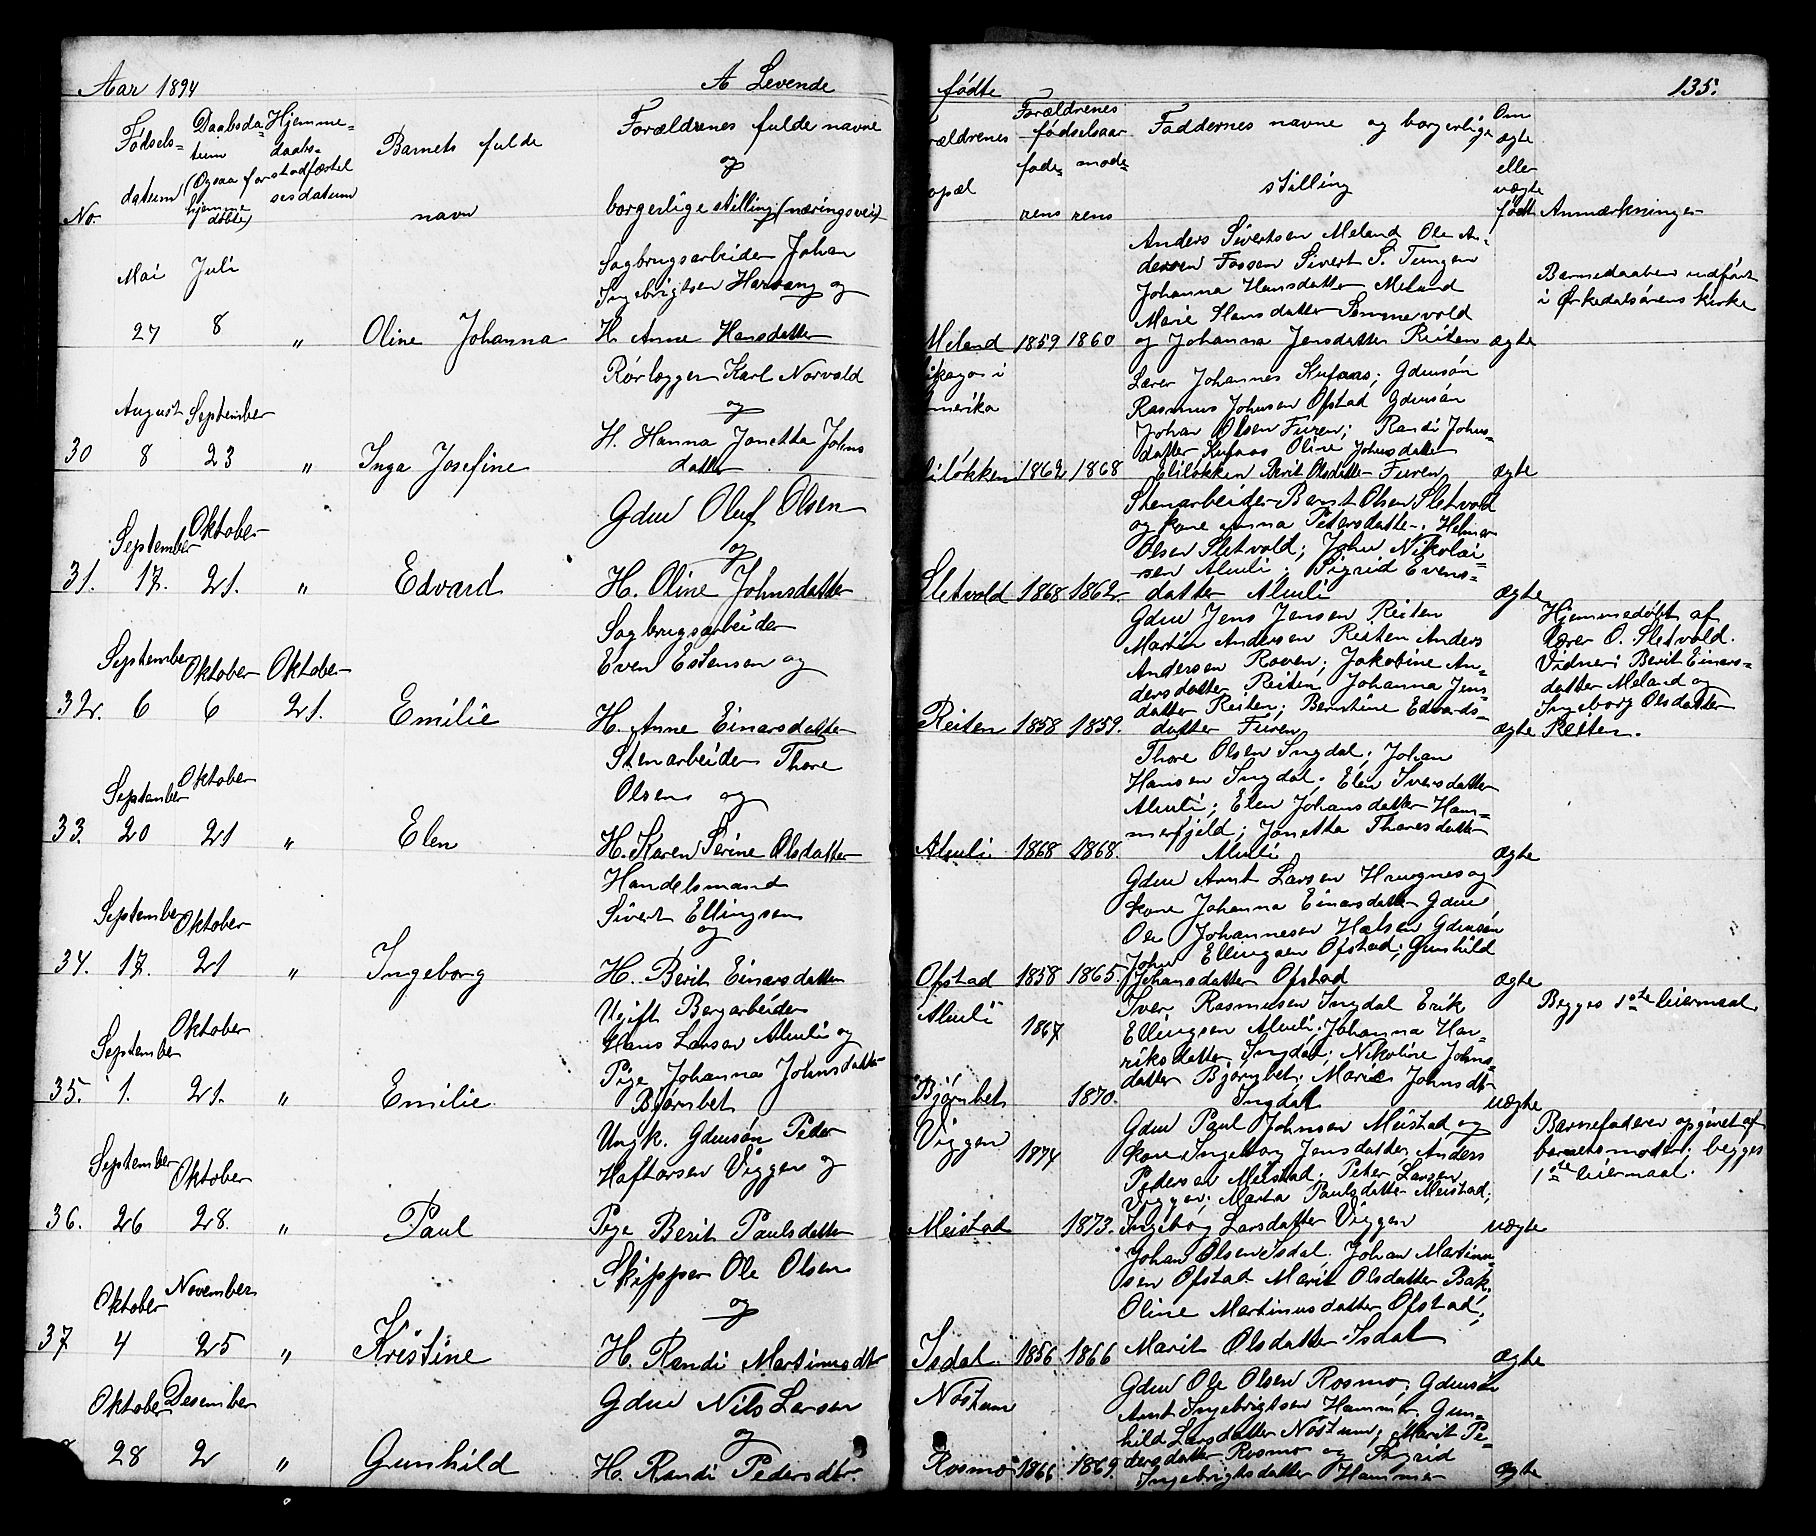 Aar 1894 A Levende
No. Fødselsdatum Daabsdatum (Ogsaa for hjemmedøbte) Hjemmedaabsstadfæstelsesdatum Barnets fulde navn Forældrenes fulde navne og borgerlige stilling (næringsvei)
Mai Juli Sagbrugsarbeider Johan
Ingebrigtsen Harvang og
27 8 " Oline Johanna H. Anne Hansdatter
Rørlægger Karl Norvald
August September og
H. Hanna Jonetta Johns
30 8 23 " Inga Josefine datter
Gdm Oluf Olsen
September Oktober og
31. 17. 21. " Edvard H. Oline Johnsdatter
Sagbrugsarbeider
September Oktober Oktober Even Estensen og
32. 6 6 21. Emilie H. Anne Einarsdatter
Stenarbeider Thore
September Oktober Olsen og
33. 20 21 " Elen H. Karen Serine Olsdatter
Handelsmand
September Oktober Sivert Ellingsen
og
34. 17. 21 " Ingeborg H. Berit Einarsdatter
Ugift Bergarbeider
September Oktober Hans Larsen Aluli og
Pige Johanna Johnsdatter
35. 1. 21. " Emilie Bjørnbet
Ungk. Gdmsøn Peder
September Oktober Haftorsen Viggen og
36. 26 28. " Paul Pige Berit Paulsdatter
Skipper Ole Olsen
Oktober November og
37 4 25 " Kristine H. Randi Martinusdtr
Oktober Desember Gdm Nils Larsen
og
28 2 " Gunhild H. Randi Pedersdtr.
fødte 135.
rældrenes opæl Forældrenes fødselsaar faderens moderens Faddernes navne og borgerlige stilling Om ægte eller uægte født Anmærkninger
Anders Sivertsen Meland Ole An-
dersen Fossen Sivert S. Tungen Barnedaaben udført
Johanna Hansdatter Meland i Ørkedalsørens kirke
Marie Hansdatter Sommervold
Meland 1859 1860 og Johanna Jensdatter Reiten ægte
ikago i Lærer Johannes Kufaas; Gdmsøn
merika Rasmus Johnsen Ofstad Gdmsøn
Johan Olsen Furen; Randi Johns-
datter Kufaas Oline Johnsdatter
liløkken 1862 1868 Eliløkken Berit Olsdatter Furen ægte
Stenarbeider Bernt Olsen Sletvold
og kone Anna Petersdatter. Helmer
Olsen Sletvold; John Nikolai-
sen Aluli; Sigrid Evens-
Sletvold 1868 1862. datter Aluli ægte
Gdm Jens Jensen Reiten Hjemmedøbt af
Martin Andersen Reiten Anders Lærer O. Sletvold.
Andersen Roven; Jakobine An- Vidner: Berit Einars-
dersdatter Reiten Johanna Jens- datter Meland og
datter Reiten; Berntine Edvards- Ingeborg Olsdatter
Reiten 1858 1859. datter Furen ægte Reiten.
Thore Olsen Ingdal; Johan
Hansen Ingdal; Elen Iversdatter
Aluli; Elen Johansdatter Ham-
merfjeld; Jonetta Thoresdatter
Aluli 1868 1868. Aluli ægte
Gdm Arnt Larsen Haugnes og
kone Johanna Einarsdatter Gdm
Ole Johannesen Halsen Gdmsøn
John Ellingsen Ofstad; Gunhild
Ofstad 1858 1865. Johansdatter Ofstad ægte
Aluli 1867 Iver Rasmusen Ingdal Erik Begges 1ste leiermaal
Ellingsen Aluli; Johanna Hen-
riksdatter Ingdal; Nikoline Johns-
datter Bjørnbet; Marie Johnsdtr
Bjørnbet 1870. Ingdal uægte
Viggen 1874 Gdm Paul Johnsen Meistad og Barnefaderen opgivet af
kone Ingeborg Jensdatter, Anders barnets moder; begges
Pedersen Meistad. Peter Larsen 1ste leiermaal.
Viggen; Marta Paulsdatter Meistad;
Meistad 1873. Ingeborg Larsdatter Viggen uægte
Johan Olsen Isdal, Johan Martinu-
sen Ofstad Marit Olsdatter Bak,
Oline Martinusdatter Ofstad;
Isdal 1856 1866 Marit Olsdatter Isdal ægte
Nøstum Gdm Ole Olsen Rosmo; Gdmsøn
Arnt Ingebrigtsen Hammer Gun-
hild Larsdatter Nøstum; Marit Pe-
dersdatter Rosmo og Sigrid
Rosmo 1866 1869. Ingebrigtsdatter Hammer ægte